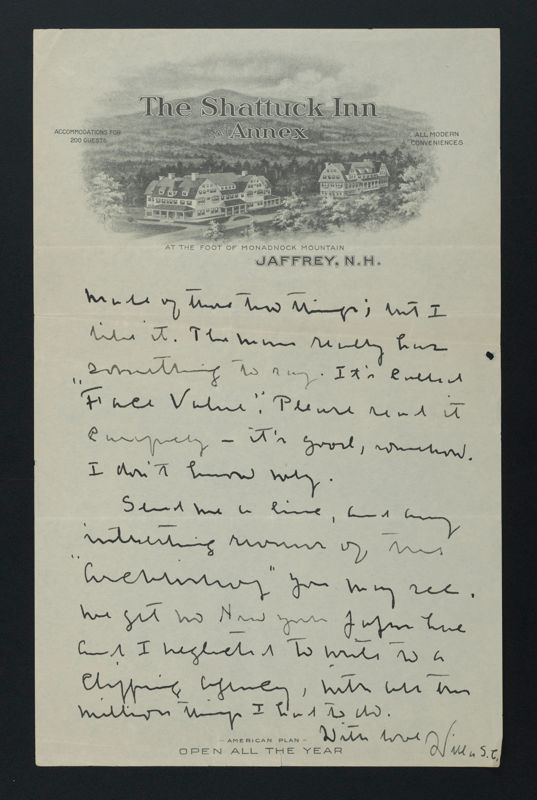 The Shattuck Inn
and Annex
ACCOMMODATIONS FOR
200 GUESTS
ALL MODERN
CONVENIENCES
AT THE FOOT OF MONADNOCK MOUNTAIN
JAFFREY, N.H.
made of those two things; but I
like it. The man really has
something to say. It's called
"Face Value". Please read it
carefully – it's good, somehow.
I don't know why.
Send me a line, and any
interesting reviews of the
"Archbishop" you may see.
We get no New York papers here
and I neglected to write to a
clipping agency, with all the
million things I had to do.
With love
Willa S. C.
- AMERICAN PLAN -
OPEN ALL THE YEAR